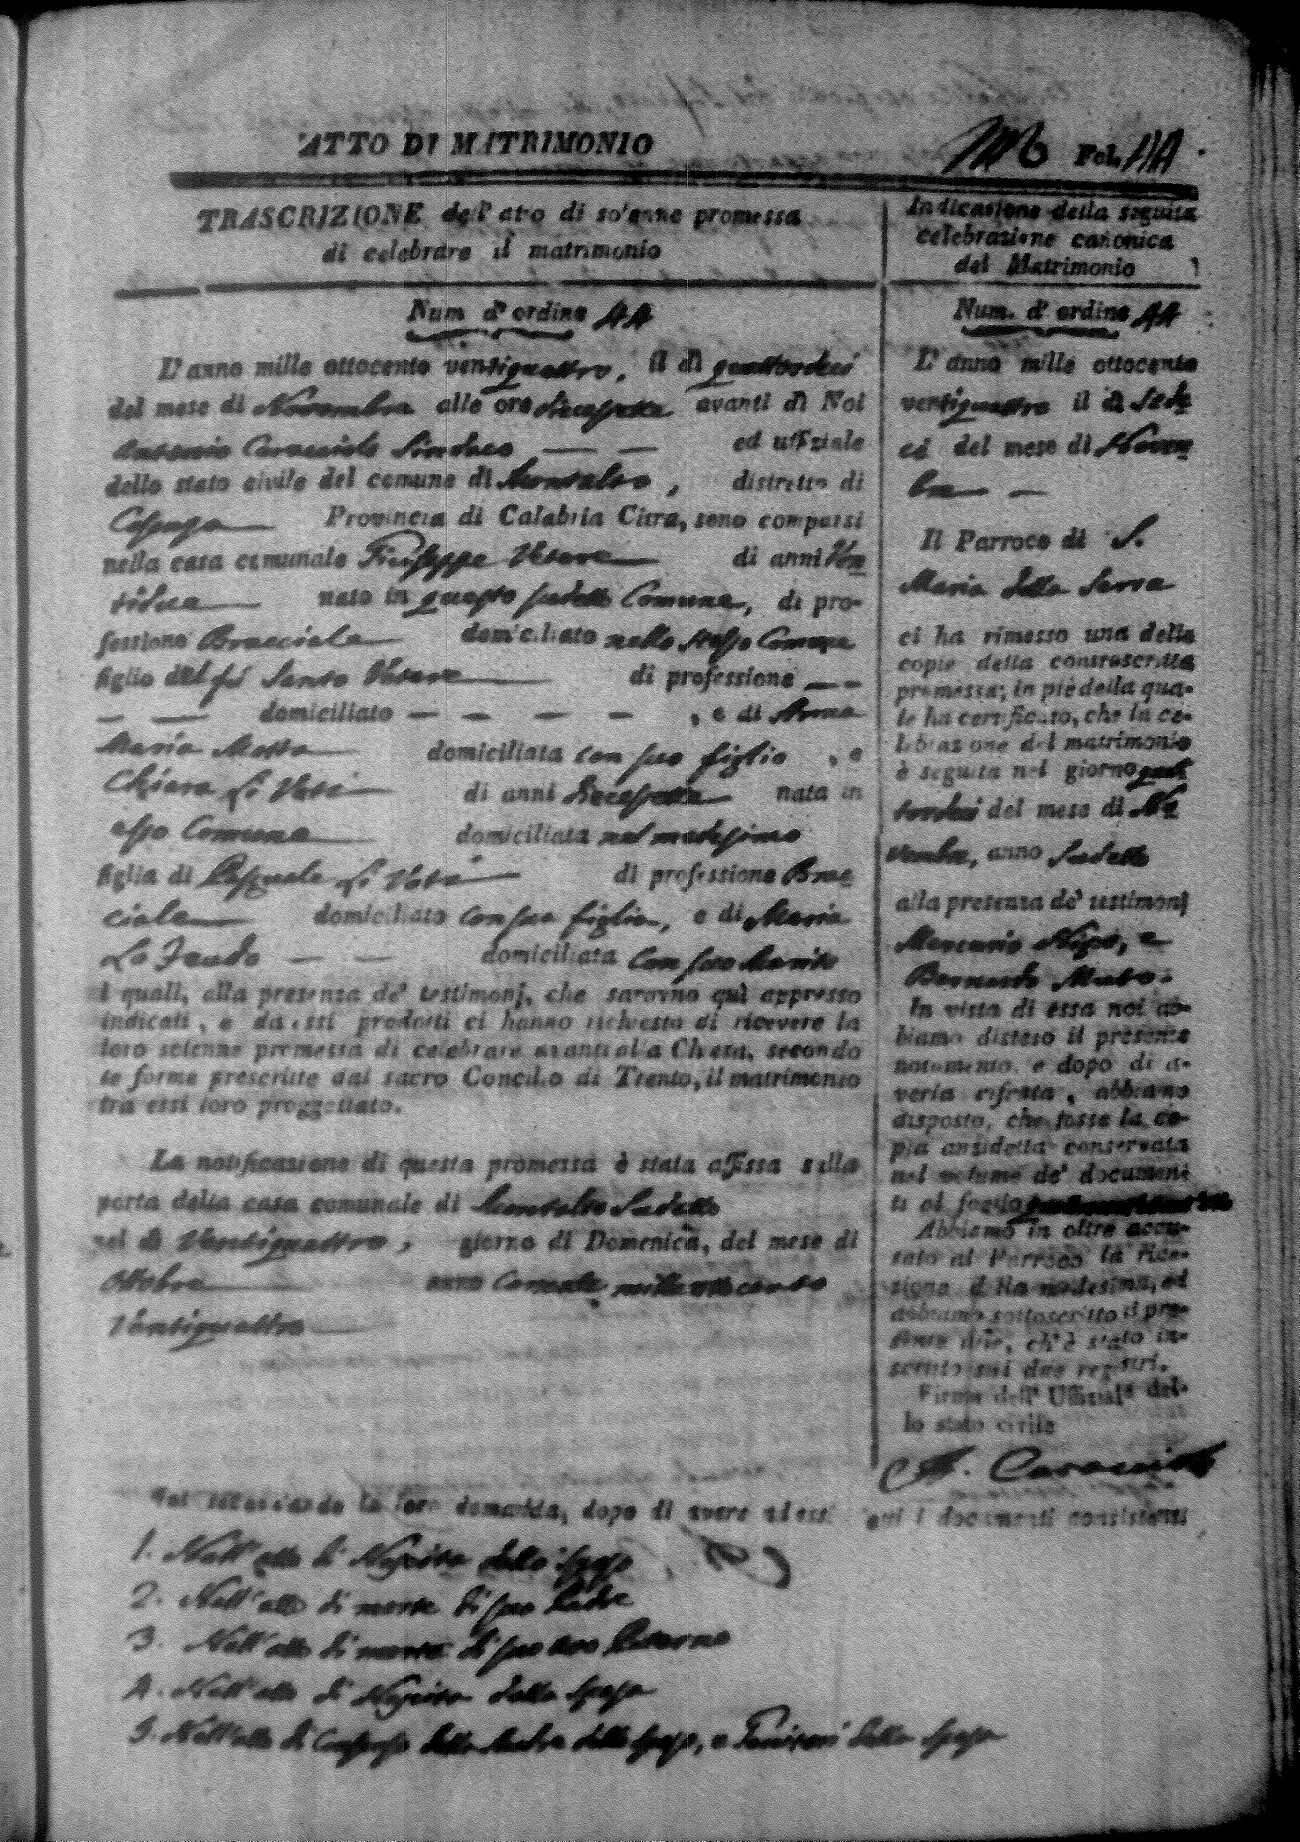 ATTO DI MATRIMONIO Fol.
TRASCRIZIONE dell' atto di solenne promessa
di celebrare il matrimonio
Num d' ordine 44
L' anno mille ottocento ventiquattro, il dì quattordeci
del mese di Novembre alle ore diecessette avanti di Noi
Antonio Caracciolo Sindaco — — ed uffiziale
dello stato civile del comune di Montalto, distretto di
Cosenza Provincia di Calabria Citra, sono comparsi
nella casa comunale Giuseppe di anni Ven
tidue nato in questo sudetto Comune, di pro-
fessione Bracciale domiciliato nello stesso Comune
figlio del fu Santo di professione — —
— — domiciliato — — — — , e di Anna
Maria domiciliata con suo figlio , e
Chiara di anni diecessette nata in
esso Comune domiciliata nel medesimo
figlia di Pasquale di professione Brac
ciale domiciliato con sua figlia, e di Maria
Lo Feudo — — domiciliata con suo Marito
i quali, alla presenza de' testimonj, che saranno quì appresso
indicati, e da essi prodotti ci hanno richiesto di ricevere la
loro solenne promessa di celebrare avanti alla Chiesa, secondo
le forme prescritte dal sacro Concilio di Trento, il matrimonio
tra essi loro proggettato.
La notificazione di questa promessa è stata affissa sulla
porta della casa comunale di Montalto Sudetto
nel dì Ventiquattro, giorno di Domenica, del mese di
Ottobre anno Corrente mille ottocento
Ventiquattro
Indicazione della seguita
celebrazione canonica
del Matrimonio
Num. d' ordine 44
L' anno mille ottocento
ventiquattro il dì Sede
ci del mese di Novem
bre — —
Il Parroco di S.
Maria della Serra
ci ha rimesso una delle
copie della controscritta
promessa; in piè della qua-
le ha certificato, che la ce-
lebrazione del matrimonio
è seguita nel giorno quat
tordeci del mese di No
vembre, anno Sudetto
alla presenza de' testimonj
Mercurio
Bernardo
In vista di essa noi ab-
biamo disteso il presente
notamento, e dopo di a-
verla cifrata, abbiamo
disposto, che fosse la co-
pia anzidetta conservata
nel volume de' documen-
ti al foglio
Abbiamo in oltre accu-
sato al Parroco la rice-
zione della medesima, ed
abbiamo sottoscritto il pre-
sente atto, ch'è stato in-
scritto sui due registri.
Firma dell' Uffiziale del-
lo stato civile
A. Caracciolo
Noi secondando la loro domanda, dopo di avere ad essi quì i documenti consistenti
1. Nell' atto di Nascita dello sposo
2. Nell' atto di morte di suo Padre
3. Nell' atto di morte di suo avo Paterno
4. Nell' atto di Nascita della sposa
5. Nell' atto di Consenso della Madre dello sposo, e Genitori della sposa